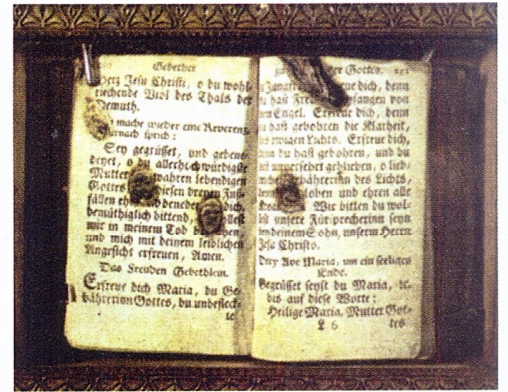 Gebether
Herz Jesu Christi, o du wohl-
riechende Viol des Thals der
Demuth.
mache wieder eine Reverenz,
darnach sprich:
Sey gegrüsset, und gebene-
deyet, o du allerhochwürdigste
Mutter wahren lebendigen
Gottes diesen dreyen Fuß-
fällen benede dich,
demüthiglich bittend,
mir in meinem Tod
und mich mit deinem leiblichen
Angesicht erfreuen, Amen.
Das Freuden Gebethlein.
Erfreue dich Maria, du Ge-
bährerinn Gottes, du unbefleck-
te
Gottes.
Jungfrau dich, denn
du hast empfangen von
Engel. Erfreue dich, denn
du hast gebohren die Klarheit,
ewigen Lichts. Erfreue dich,
du hast gebohren, und du
unversehrt geblieben, o
Gebährerinn des Lichts,
loben und ehren alle
Wir bitten du wol-
lest unsere Fürsprecherinn seyn
deinem Sohn, unserm Herrn
Jesu Christo.
Drey Ave Maria, um ein seeliges
Ende.
Gegrüsset seyst du Maria, ꝛc.
bis auf diese Worte:
Heilige Maria, Mutter Got-
L 6 tes